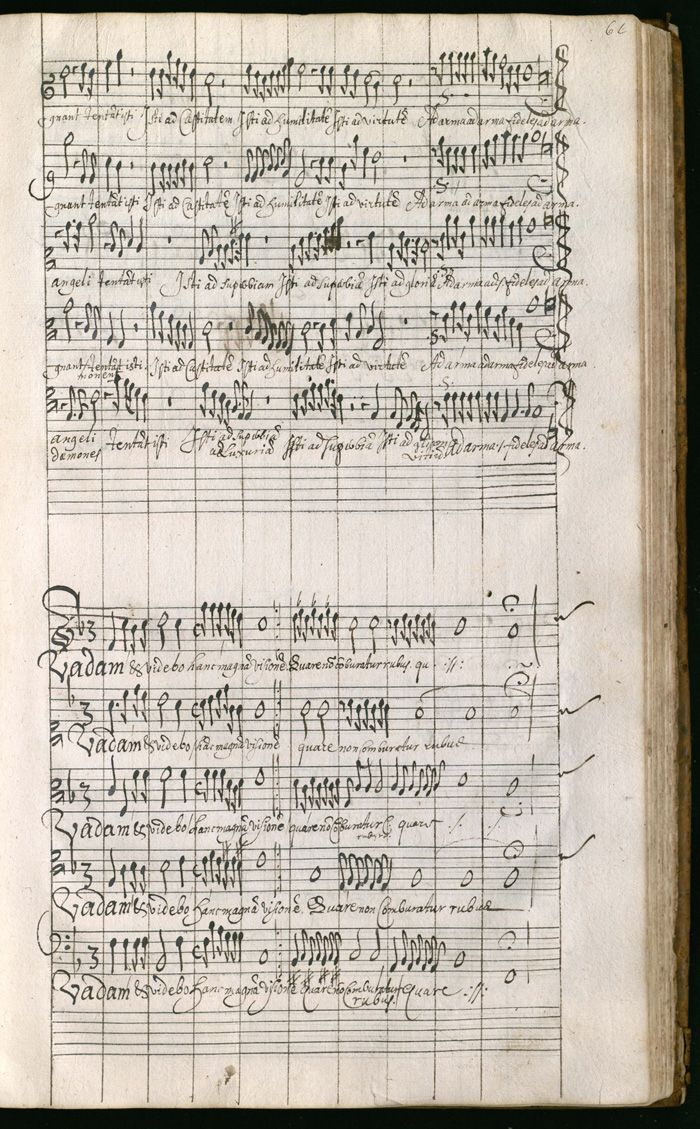 gnant tentāt isti Isti ad Castitatem Isti ad humilitatē Isti ad virtutē Ad arma ad arma fideles ad arma.
gnant tentāt isti Isti ad Castitatē Isti ad humilitatē Isti ad virtutē Ad arma ad arma fideles ad arma.
angeli tentāt isti Isti ad superbiam Isti ad superbiā Isti ad gloriā Ad arma fideles ad arma.
gnant tentāt isti Isti ad Castitatē Isti ad humilitatē Isti ad virtutē Ad arma ad arma fideles ad arma
angeli tentāt isti Isti ad superbiā Isti ad superbiā Isti ad Ad arma fideles ad arma.
dæmones ad Luxuriā
Vadam & videbo hanc magnā visionē Quare nō cōburatur rubus. qu :||:
Vadam & videbo hanc magnā visionē quare non comburatur rubus
Vadam & videbo hanc magnā visionē quare nō cōburatur quare
Vadam & videbo hanc magnā visionē. Quare non comburatur rubus
Vadam & videbo hanc magnā visionē Quare nō comburatur Quare :||:
rubus.